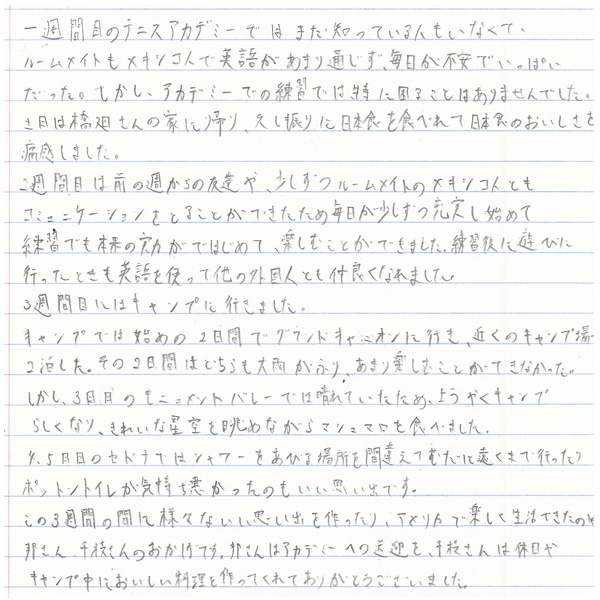 一週間目のテニスアカデミーではまだ知っている人もいなくて、
ルームメイトもメキシコ人で英語があまり通じず、毎日が不安でいっぱい
だった。しかし、アカデミーでの練習では特に困ることはありませんでした。
土日は橋廻さんの家に帰り、久し振りに日本食を食べれて日本食のおいしさを
痛感しました。
2週間目は前の週からの友達や、少しずつルームメイトのメキシコ人とも
コミュニケーションをとることができたため毎日が少しずつ充実し始めて
練習でも本来の実力がではじめて、楽しむことができました。練習後に遊びに
行ったときも英語を使って他の外国人とも仲良くなれました。
3週間目にはキャンプに行きました。
キャンプでは始めの2日間でグランドキャニオンに行き、近くのキャンプ場
2泊した。その2日間はどちらも大雨がふり、あまり楽しむことができなかった。
しかし、3日目のモニュメントバレーでは晴れていたため、ようやくキャンプ
らしくなり、きれいな星空を眺めながらマシュマロを食べました。
4.5日目のセドナではシャワーをあびる場所を間違えてむだに遠くまで行ったり
ポットントイレが気持ち悪かったのもいい思い出です。
この3週間の間に様々ないい思い出を作ったり、アメリカで楽しく生活できたのは
邦さん、千枝さんのおかげです。邦さんはアカデミーへの送迎を、千枝さんは休日や
キャンプ中においしい料理を作ってくれてありがとうございました。